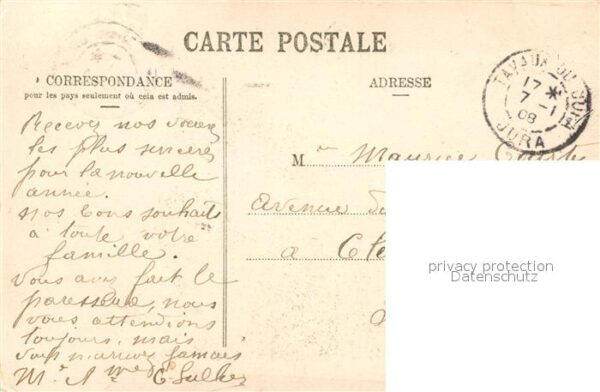 CARTE POSTALE
CORRESPONDANCE
pour les pays seulement où cela est admis.
ADRESSE
17 *
7 - 1
08
JURA
Recevez nos voeux
les plus sincères
pour la nouvelle
année.
nos bons souhaits
à toute votre
famille.
Vous avez fait le
paresseux, nous
vous attendions
toujours, mais
vous n'arrivez jamais
M
Maurice
avenue du
à
privacy protection
Datenschutz